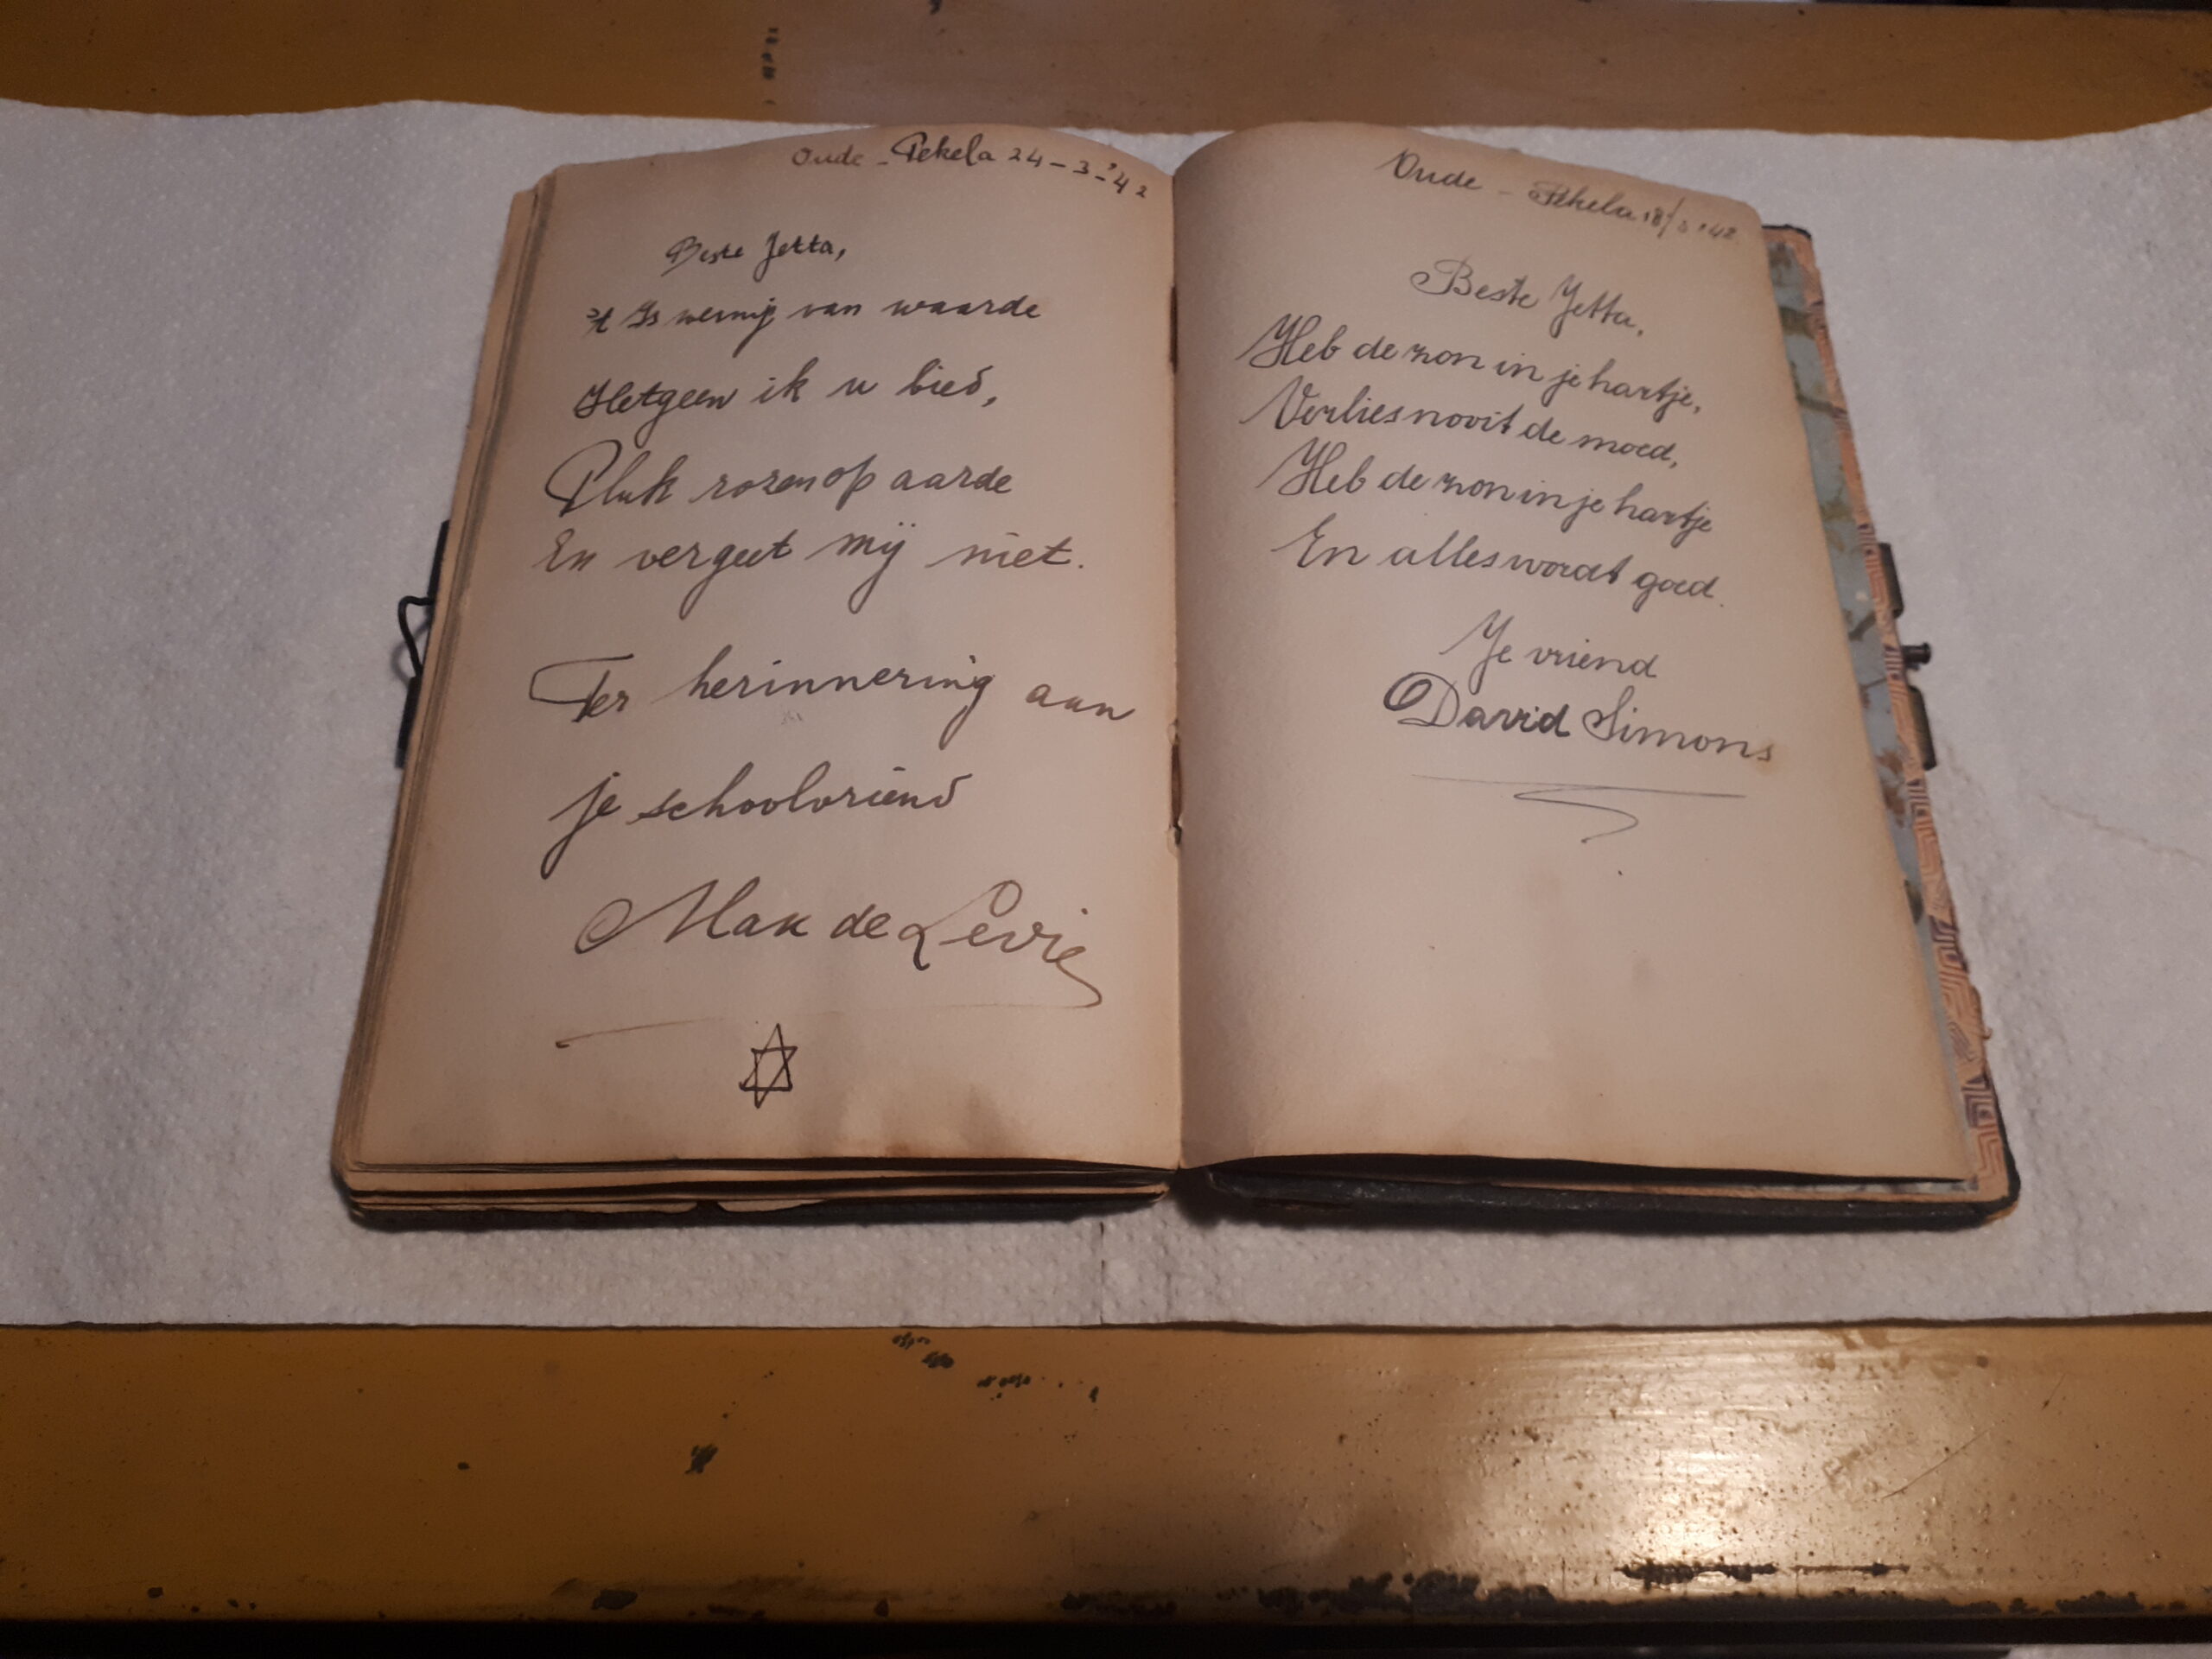 Oude - Pekela 24-3-'42
Beste Jetta,
't Is weinig van waarde
Hetgeen ik u bied,
Pluk rozen op aarde
En vergeet mij niet.
Ter herinnering aan
je schoolvriend
Max de Levie
Oude - Pekela 18/3 '42
Beste Jetta,
Heb de zon in je hartje,
Verlies nooit de moed,
Heb de zon in je hartje
En alles wordt goed.
Je vriend
David Simons